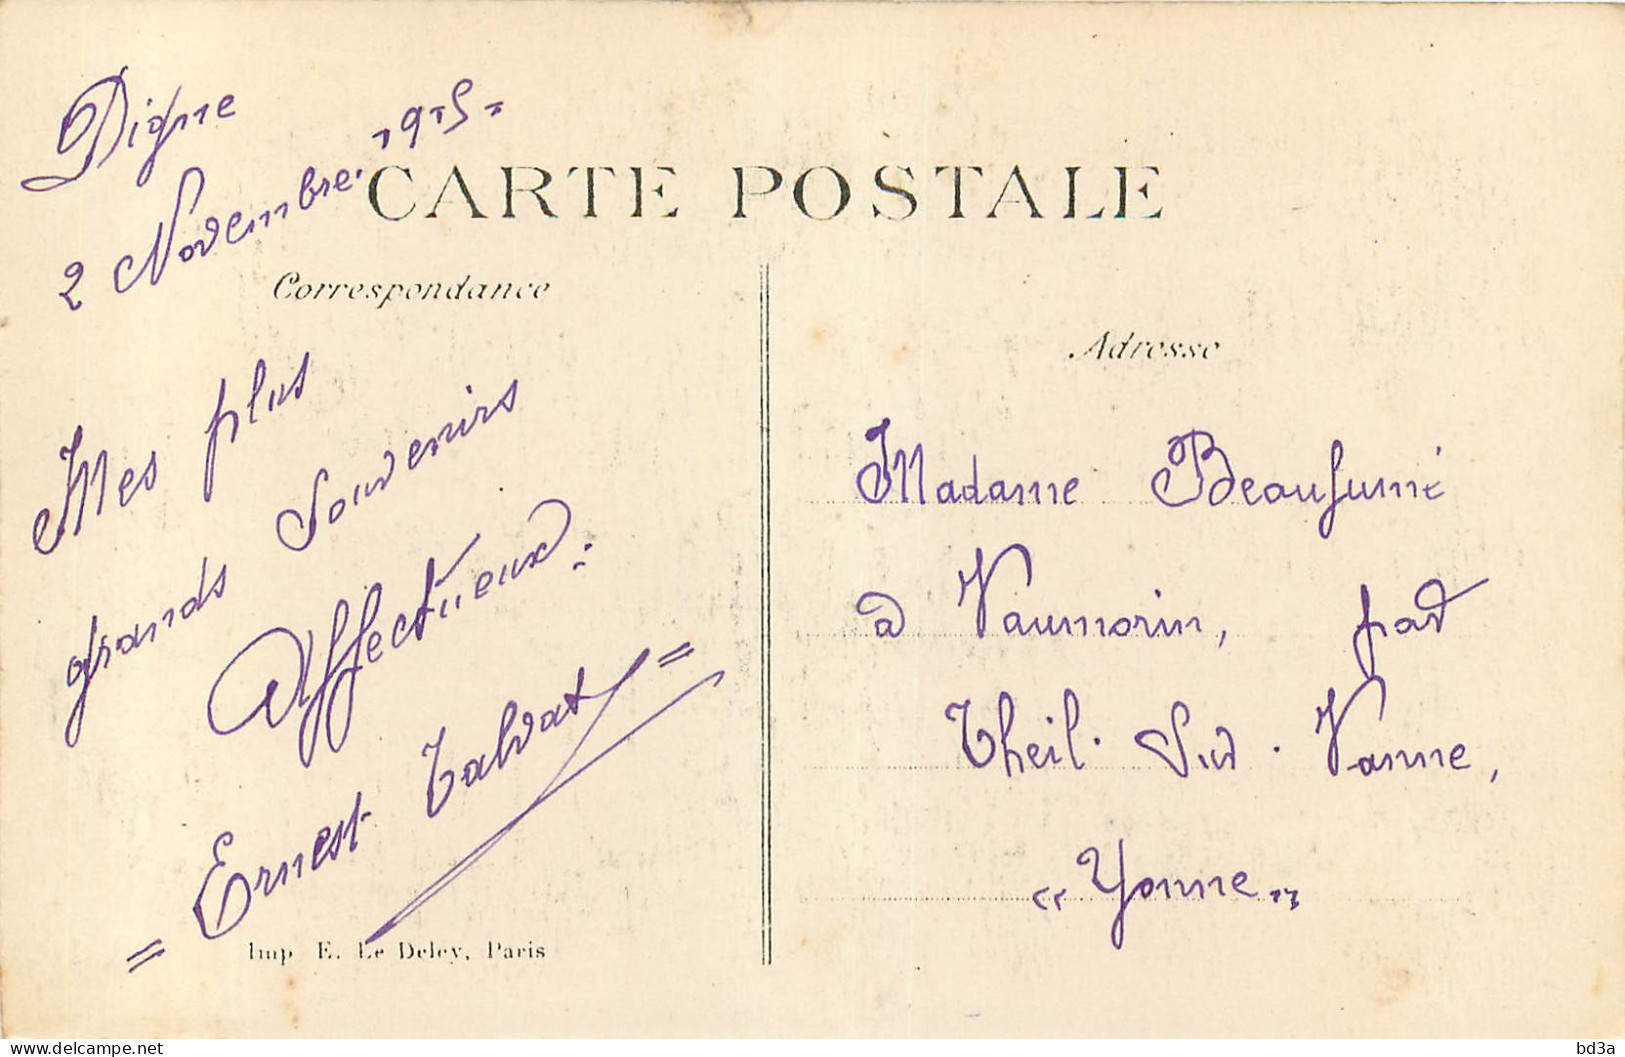 Digne
2 Novembre. 1915
CARTE POSTALE
Correspondance
Adresse
Mes plus
grands Souvenirs
Affectueux.
= Ernest Talvat =
Madame Beaufumé
à Vaumorin, par
Theil. Sur. Vanne,
" Yonne "
Imp E. Le Deley, Paris
bd3a
www.delcampe.net